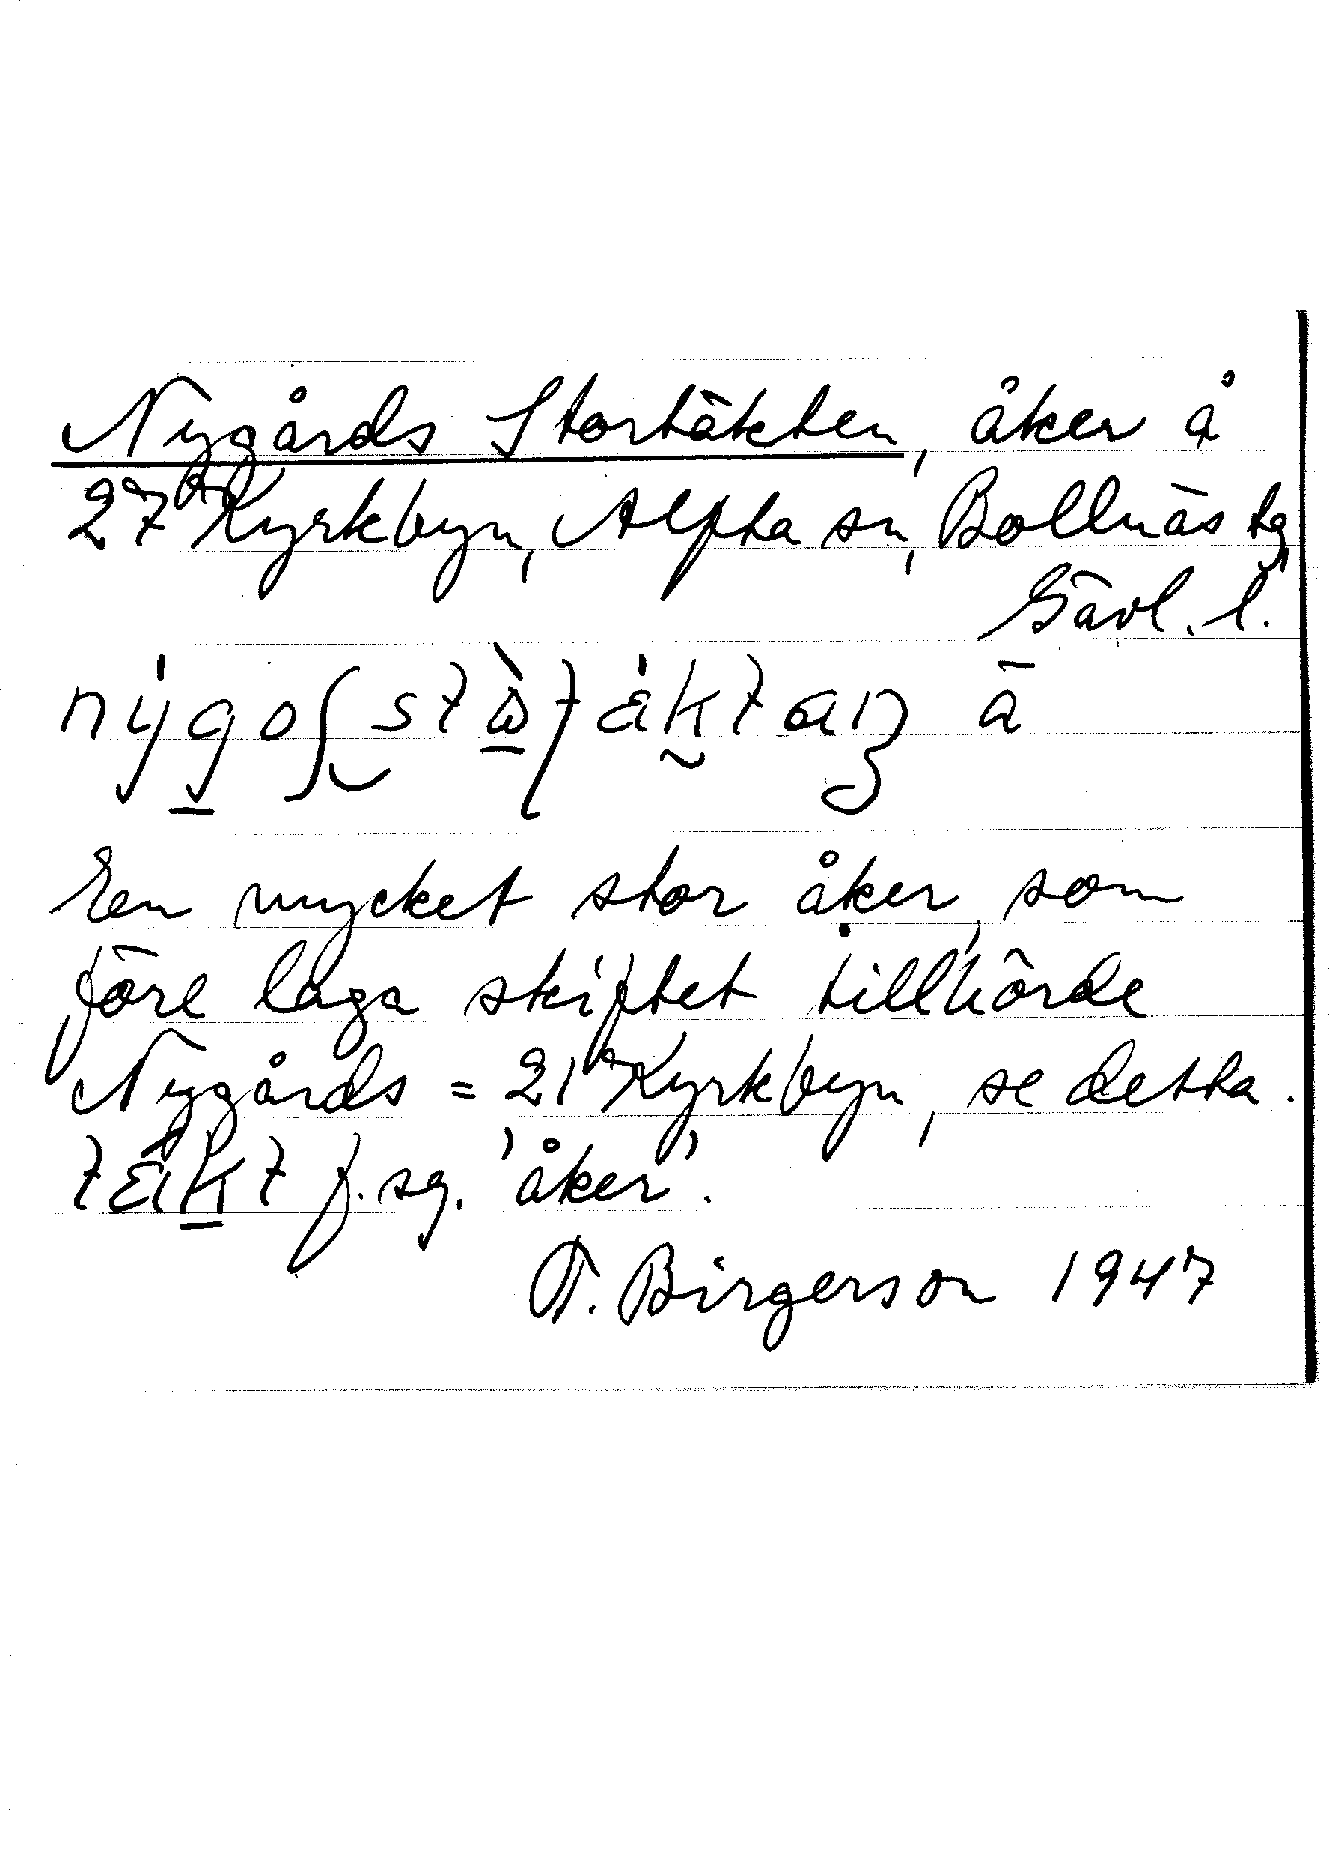 Nygårds Stortäkten, åker å
27 Kyrkbyn, Alfta sn, Bollnäs tg,
Gävl. l.
En mycket stor åker, som
före laga skiftet tillhörde
Nygårds = 21 Kyrkbyn, se detta.
f. sg. 'åker'.
T. Birgerson 1947